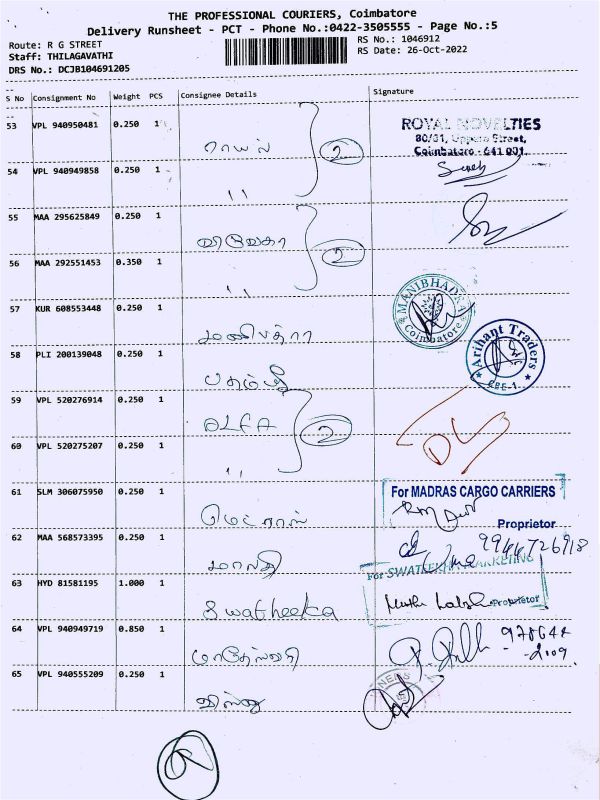 THE PROFESSIONAL COURIERS, Coimbatore
Delivery Runsheet - PCT - Phone No.:0422-3505555 - Page No.:5
Route: R G STREET
RS No.: 1046912
Staff: THILAGAVATHI
RS Date: 26-Oct-2022
DRS No.: DCJB104691205
S No Consignment No Weight PCS Consignee Details Signature
53 VPL 940950481 0.250 1 ராயல் 2
ROYAL NOVELTIES
80/31, Uppara Street,
Coimbatore - 641 001.
54 VPL 940949858 0.250 1 ,,
55 MAA 295625849 0.250 1 2
56 MAA 292551453 0.350 1 ,,
57 KUR 608553448 0.250 1 மணிபத்ரா
MANIBHADRA
Coimbatore
58 PLI 200139048 0.250 1
Arihant Traders
CBE-1
59 VPL 520276914 0.250 1 2
60 VPL 520275207 0.250 1 ,,
61 SLM 306075950 0.250 1 மெட்ராஸ்
For MADRAS CARGO CARRIERS
Proprietor
62 MAA 568573395 0.250 1 மாலதி
9944726918
63 HYD 81581195 1.000 1 Swatheeka
For SWATHEEKA MARKETING
Proprietor
64 VPL 940949719 0.850 1 மாதேஸ்வரி
65 VPL 940555209 0.250 1